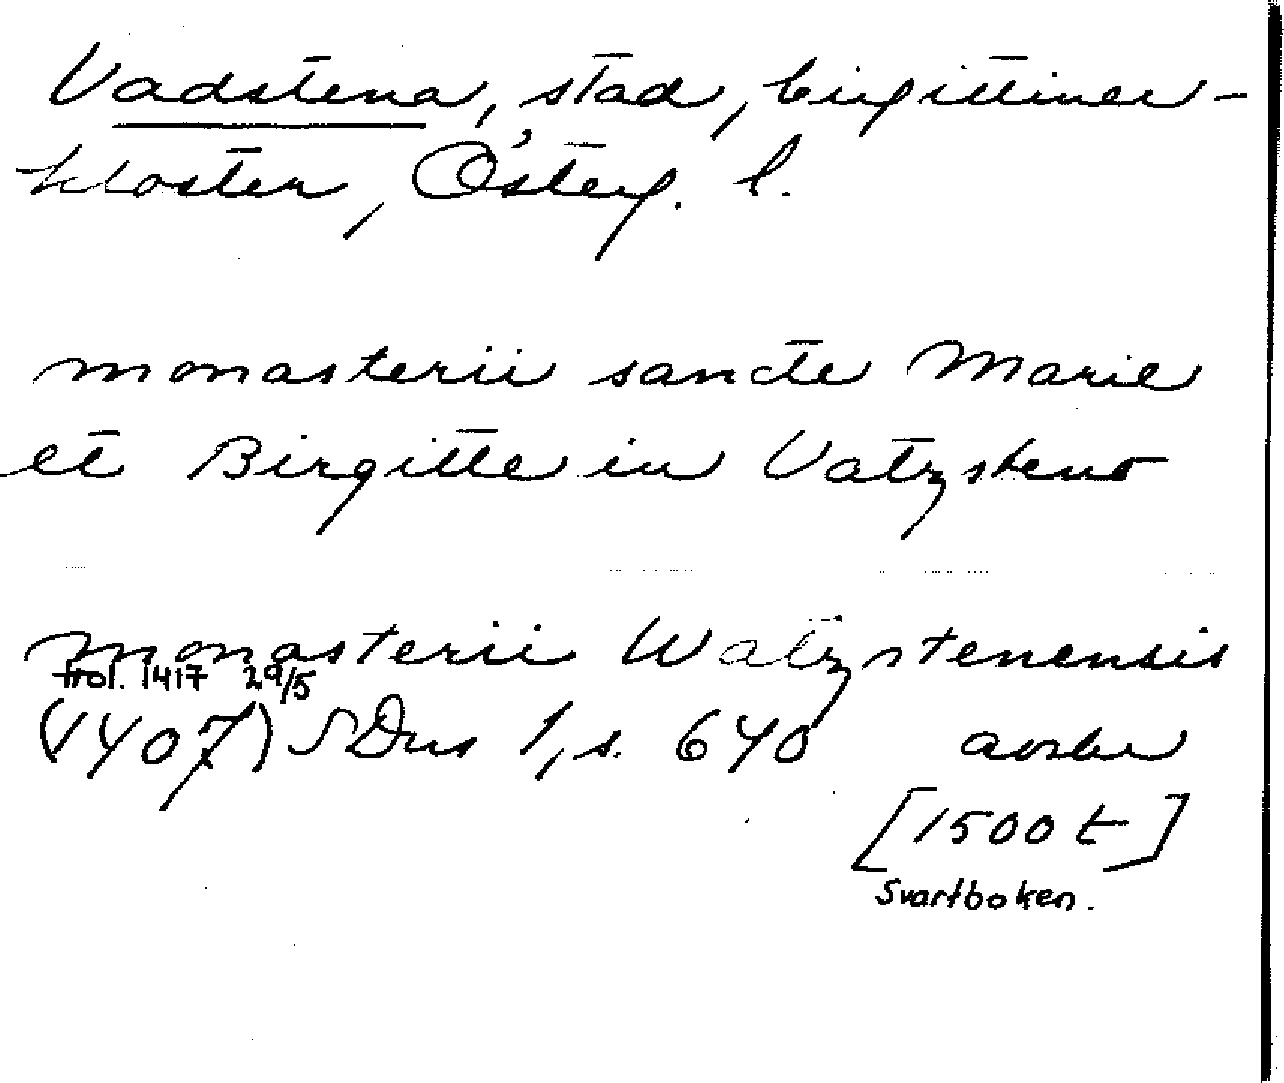 Vadstena, stad, birgittiner-
kloster, Österg. l.
monasterii sancte Marie
et Birgitte in Vatzsteno
monasterii Watzstenensis
trol. 1417 29/5
(1407) SDns 1, s. 640 avskr
[1500 t]
Svartboken.